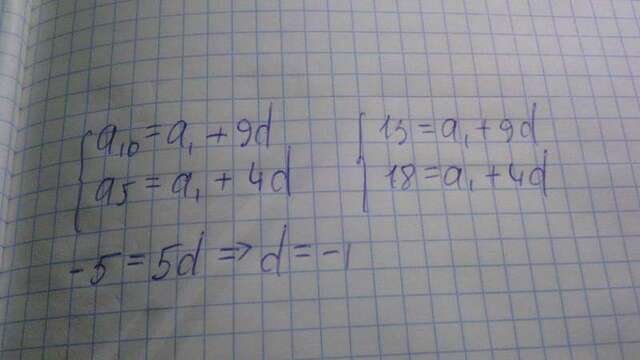 a₁₀ = a₁ + 9d   13 = a₁ + 9d
a₅ = a₁ + 4d   18 = a₁ + 4d
-5 = 5d => d = -1